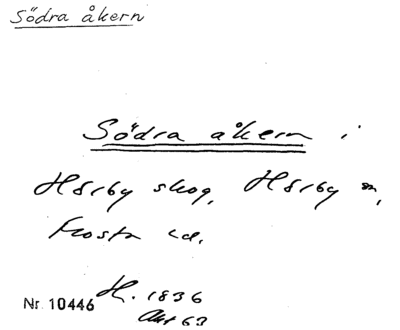 Södra åkern
Södra åkern i
Hörby skog, Hörby sn,
Frosta hd.
Nr. 10446 H. 1836
Akt 63